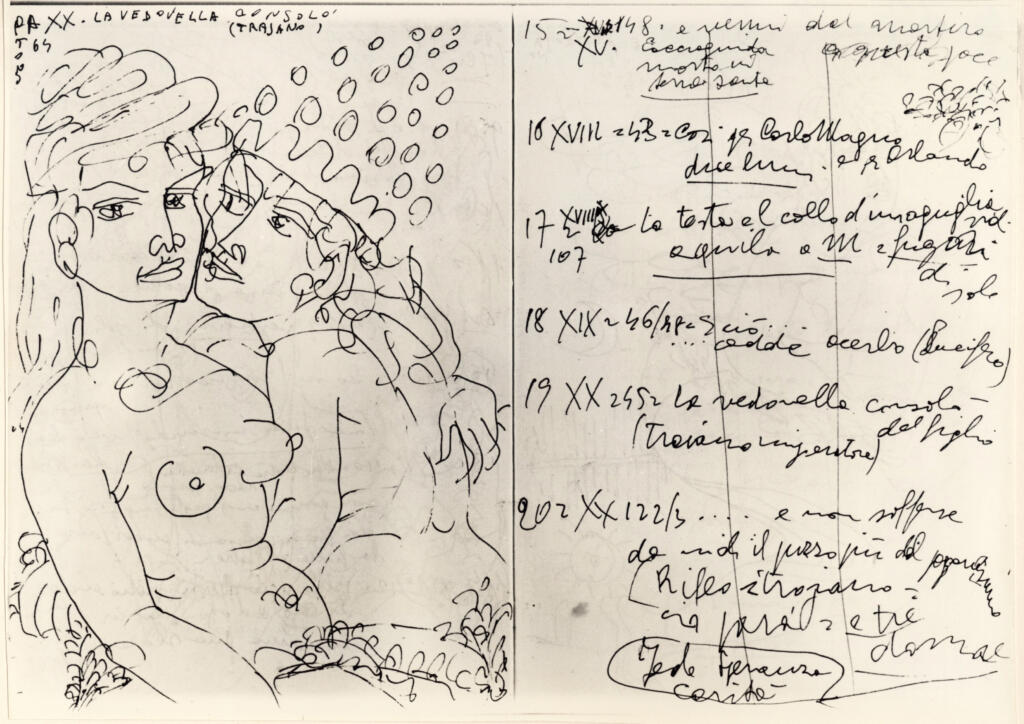 PA XX. LA VEDOVELLA CONSOLÒ
(TRAJANO)
T 64
15 = 148. e venni dal martiro
XV. Cacciaguida a questa pace
morto in
terra santa
16 XVIII = 43 = Così per Carlo Magno
e per Orlando
due lumi
17 XVIII La testa e 'l collo d'un aguglia vid.
107 aquila a M
di
sole
18 XIX = 46/48 =
.... cadde acerbo (Lucifero)
19 XX = 45 = La vedovella consolò
del figlio
(Traiano imperatore)
20 = XX 122/3 ..... e non sofferse
da indi il puzzo più del paganesmo
Rifeo = troiano =
e tre
donne
fede speranza
carità